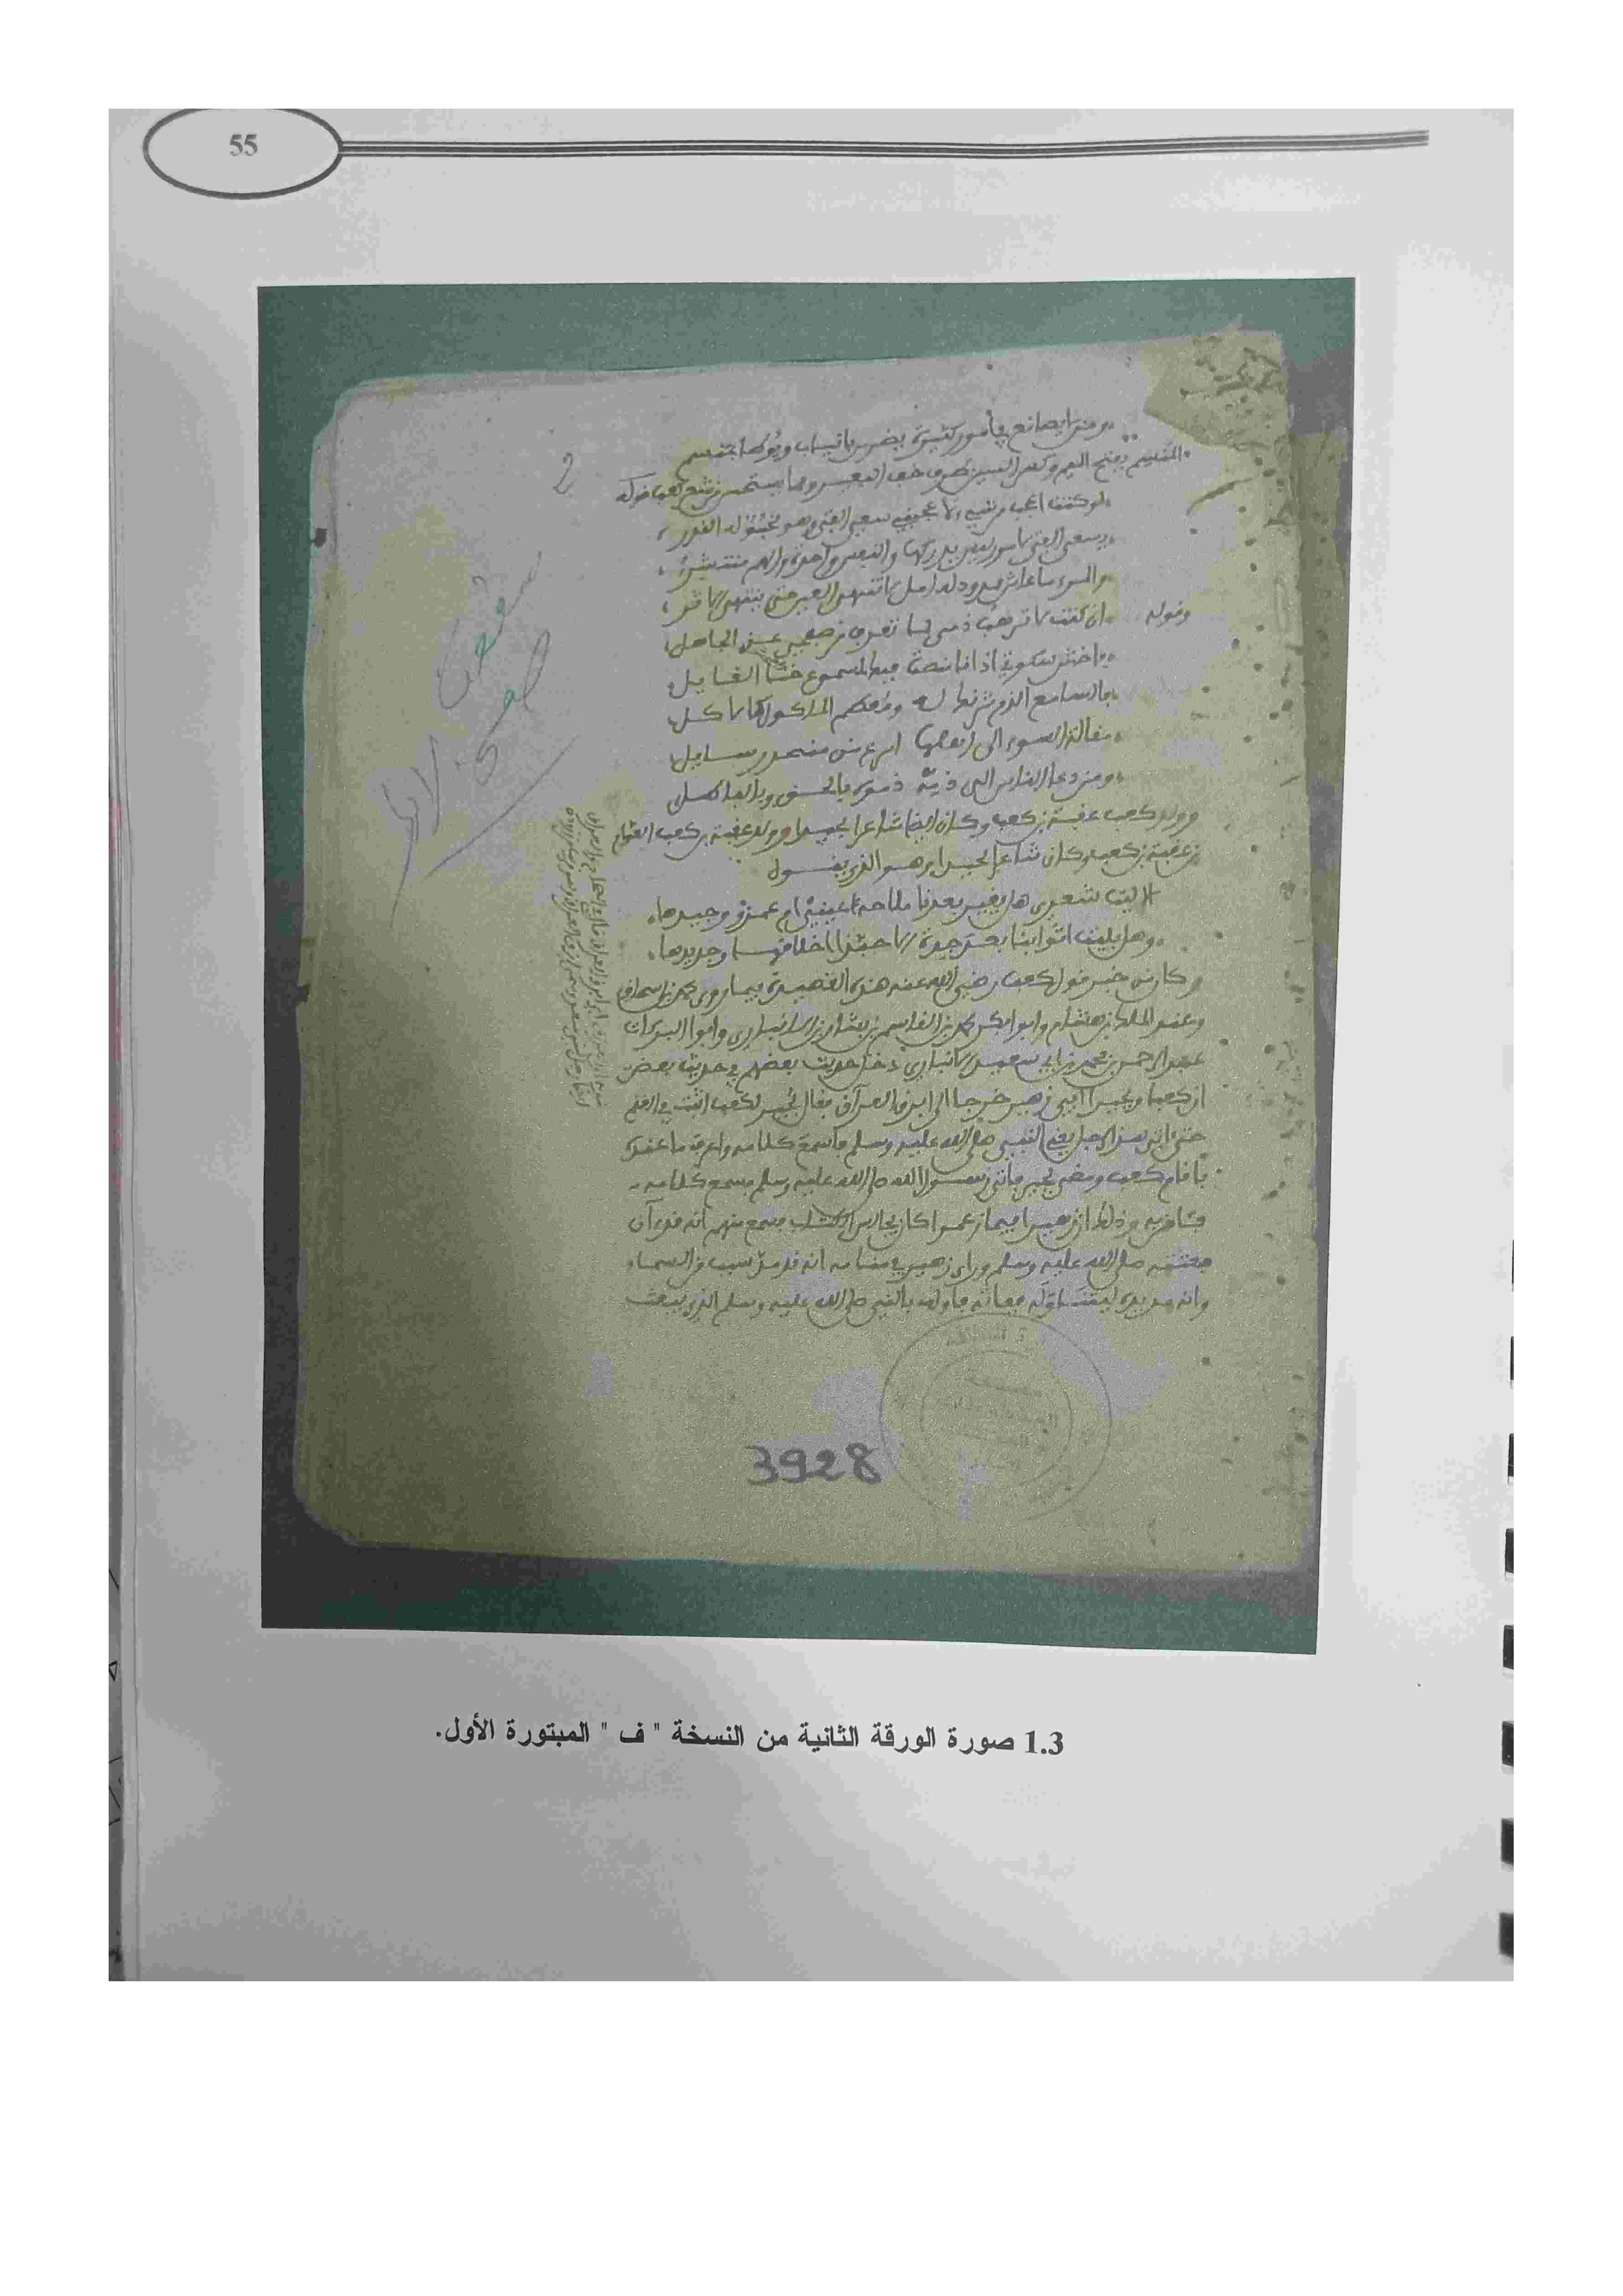 55
ومن لا يصانع في أمور كثيرة يضرس بأنياب ويوطأ بمنسم
المنسم بفتح الميم وكسر السين طرف خف البعير ومما يستحسن من شعر كعب قوله
2
لو كنت اعجب من شيء لا عجبني سعي الفتى وهو مخبوء له القدر
يسعى الفتى لامور ليس يدركها والنفس واحدة والهم منتشر
والمرء ما عاش ممدود له امل لا تنتهي العين حتى ينتهي الاثر
وقوله ان كنت لا ترهب ذمي لما تعرف من صفحي عن الجاهل
فاخش سكوتي اذ انا منصت فيك لمسموع خنا القايل
فالسامع الذم شريك له ومطعم الماكول كالاكل
مقالة السوء الى اهلها اسرع من منحدر سايل
ومن دعا الناس الى ذمه ذموه بالحق وبالباطل
وولد كعب عقبة بن كعب وكان ايضا شاعرا مجيدا وولد عقبة بن كعب العوام
بن عقبة بن كعب وكان شاعرا مجيدا وهو الذي يقول
الا ليت شعري هل تغير بعدنا ملاحة عيني ام عمرو وجيدها
وهل بليت اثوابها بعد جدة الا حبذا اخلاقها وجديدها
وكان من خبر قول كعب رضي الله عنه هذه القصيدة فيما روى محمد بن اسحاق
وعبد الملك بن هشام وابوا بكر محمد بن القاسم بن بشار بن الانباري وابوا البركات
عبد الرحمن بن محمد بن ابي سعيد الانباري دخل حديث بعضهم في حديث بعض
ان كعبا وبجيرا ابني زهير خرجا الى ابرق العزاف فقال بجير لكعب اثبت في الغنم
حتى اتي هذا الرجل يعني النبي صلى الله عليه وسلم فاسمع كلامه واعرف ما عنده
فاقام كعب ومضى بجير فاتى رسول الله صلى الله عليه وسلم فسمع كلامه
فئامن به وذلك ان زهيرا فيما زعموا كان يجالس اهل الكتاب فسمع منهم انه قد ءان
مبعثه صلى الله عليه وسلم وراى زهير في منامه انه قد مد سبب من السماء
وانه مد يده ليتناوله ففاته فاوله بالنبي صلى الله عليه وسلم الذي يبعث
3928
1.3 صورة الورقة الثانية من النسخة " ف " المبتورة الأول.